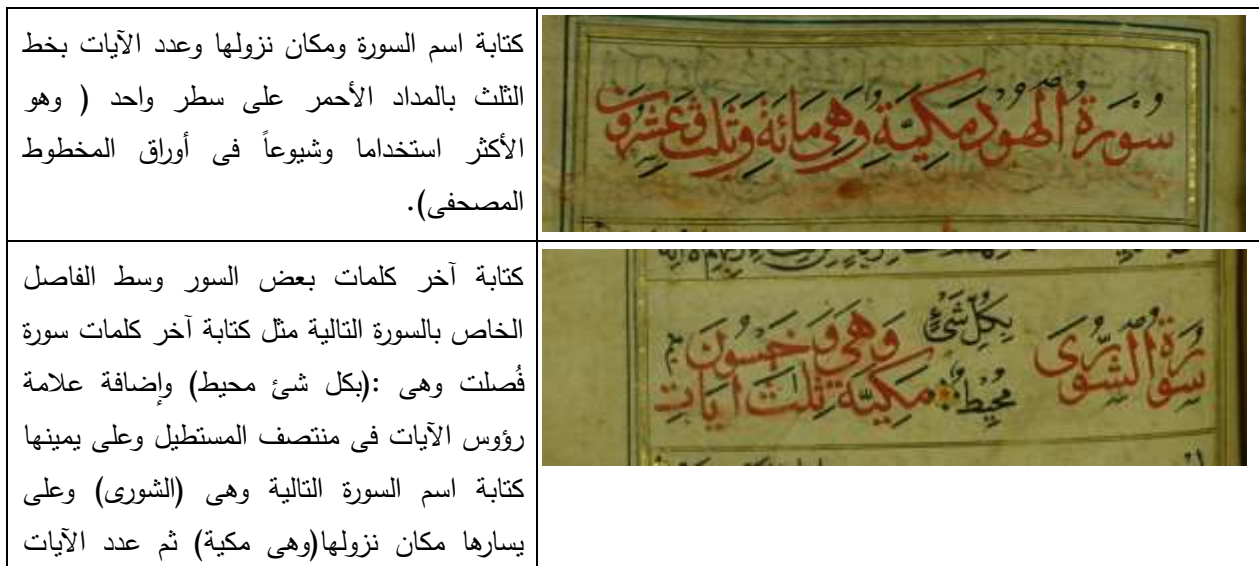 كتابة اسم السورة ومكان نزولها وعدد الآيات بخط
الثلث بالمداد الأحمر على سطر واحد ( وهو
الأكثر استخداما وشيوعاً فى أوراق المخطوط
المصحفى).
سُورَةُ الْهُودْ مَكِيَّةٌ وَهِىَ مَائَةٌ وَثَلٰثَ وَعَشِرُونَ
كتابة آخر كلمات بعض السور وسط الفاصل
الخاص بالسورة التالية مثل كتابة آخر كلمات سورة
فُصلت وهى :(بكل شئ محيط) وإضافة علامة
رؤوس الآيات فى منتصف المستطيل وعلى يمينها
كتابة اسم السورة التالية وهى (الشورى) وعلى
يسارها مكان نزولها(وهى مكية) ثم عدد الآيات
سُورَةُ الشُّورٰى
بِكُلِّ شَئٍ
مُحِيطٌ
وَهِىَ وَخَمْسُونَ
مَكِيَّة ثَلٰثَ اٰيَاتٍ